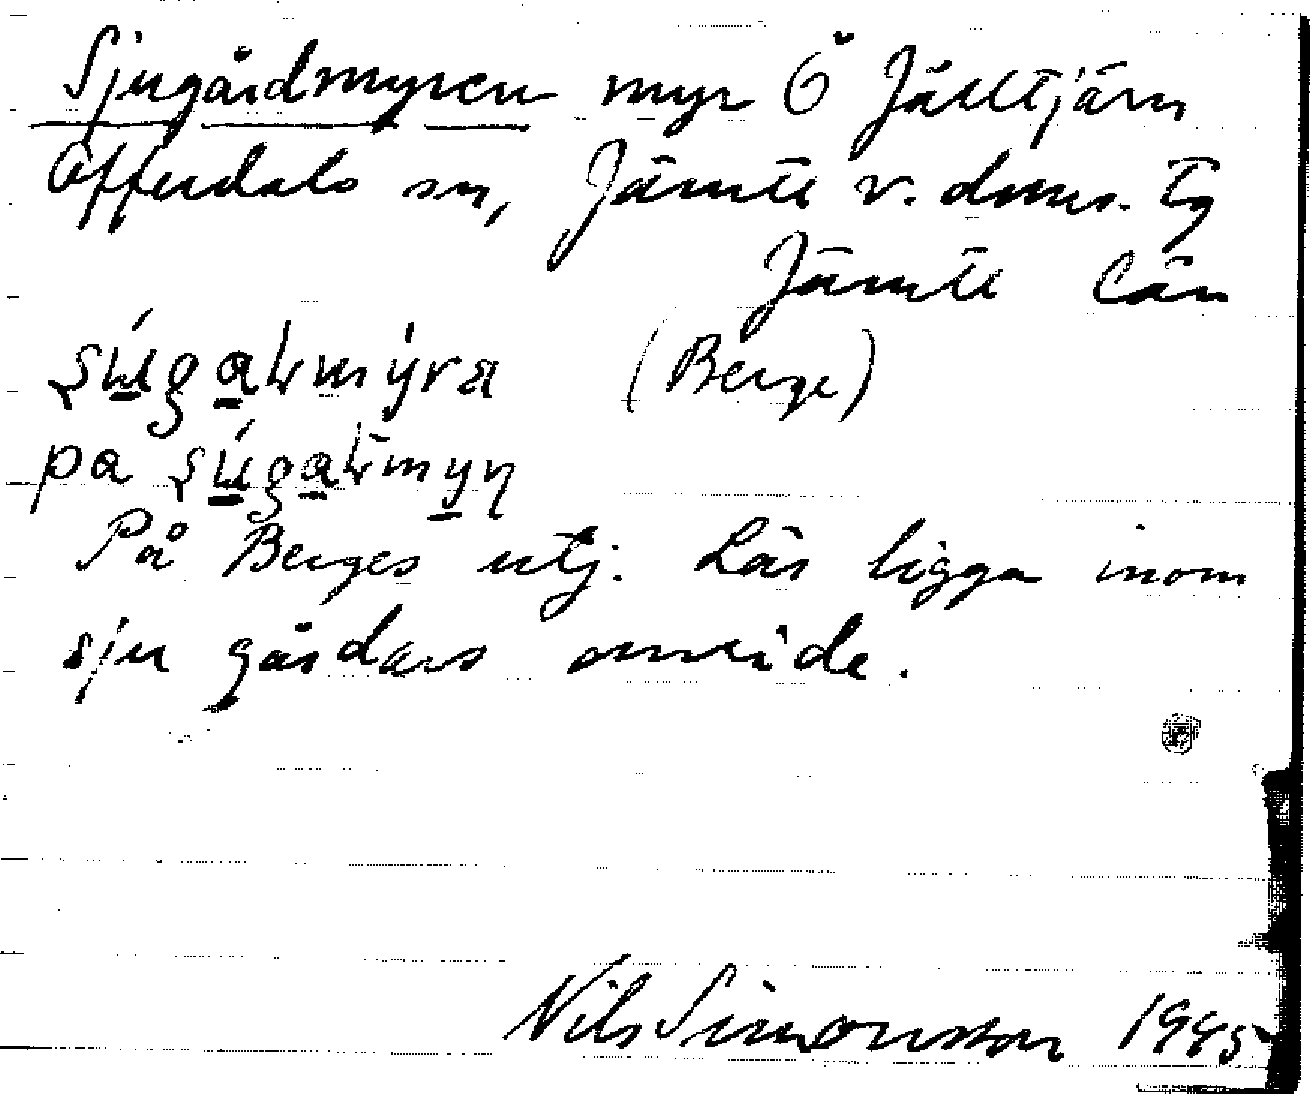 Sjugårdmyren myr Ö Jälltjärn
Offerdals sn, Jämtl v. doms. tg
Jämtl län
(Berge)
på
På Berges utj. Lär ligga inom
sju gårdars område.
Nils Simonsson 1945